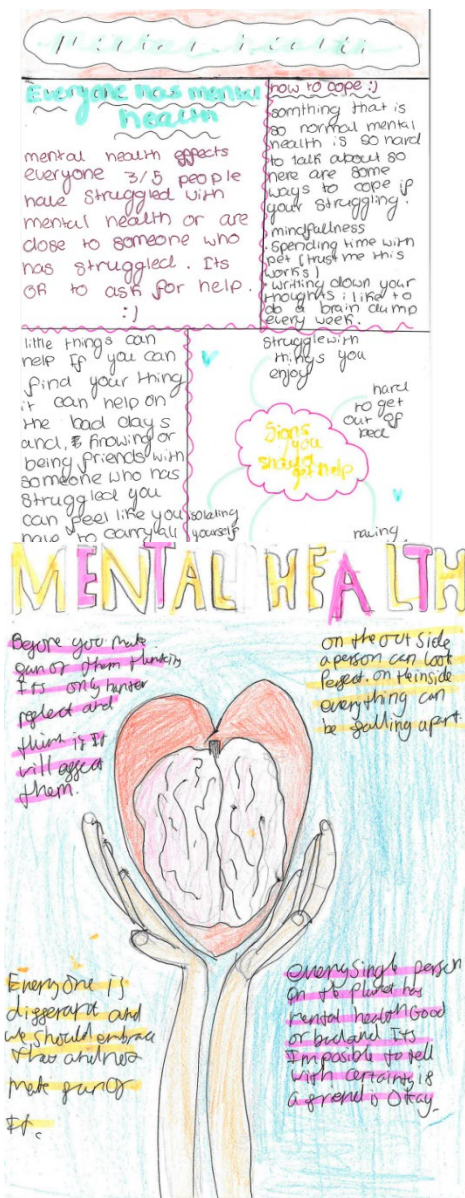 Mental health
Everyone has mental
health
mental health effects
everyone 3/5 people
have struggled with
mental health or are
close to someone who
has struggled. Its
OK to ask for help.
:)
how to cope :)
somthing that is
so normal mental
health is so hard
to talk about so
here are some
ways to cope if
your struggling.
mindfullness
.spending time with
pet (trust me this
works)
.writing down your
thoughts i like to
do a brain dump
every week.
little things can
help if you can
find your thing
it can help on
the bad days
and, knowing or
being friends with
someone who has
struggled you
can feel like you
have to carry all
struggle with
things you
enjoy
hard
to get
out of
bed
Signs
you
should
get help
isolating
yourself
MENTAL HEALTH
Before you make
fun of them thinking
Its only banter
reflect and
think if It
will affect
them.
on the out side
a person can look
Perfect. on the inside
everything can
be falling apart.
Everyone is
differant and
we should embrace
that and not
make fun of
It.
every single person
on the planet has
mental health Good
or bad and Its
Imposible to tell
with certainty if
a friend is Okay.